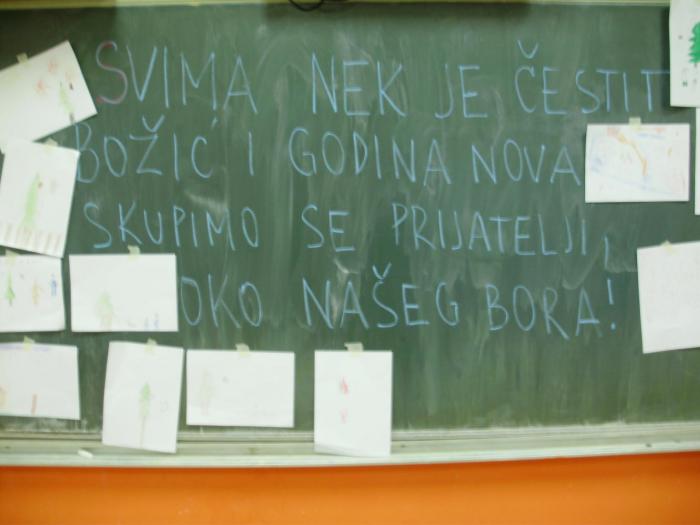 SVIMA NEK JE ČESTIT
BOŽIĆ I GODINA NOVA
SKUPIMO SE PRIJATELJI,
OKO NAŠEG BORA!